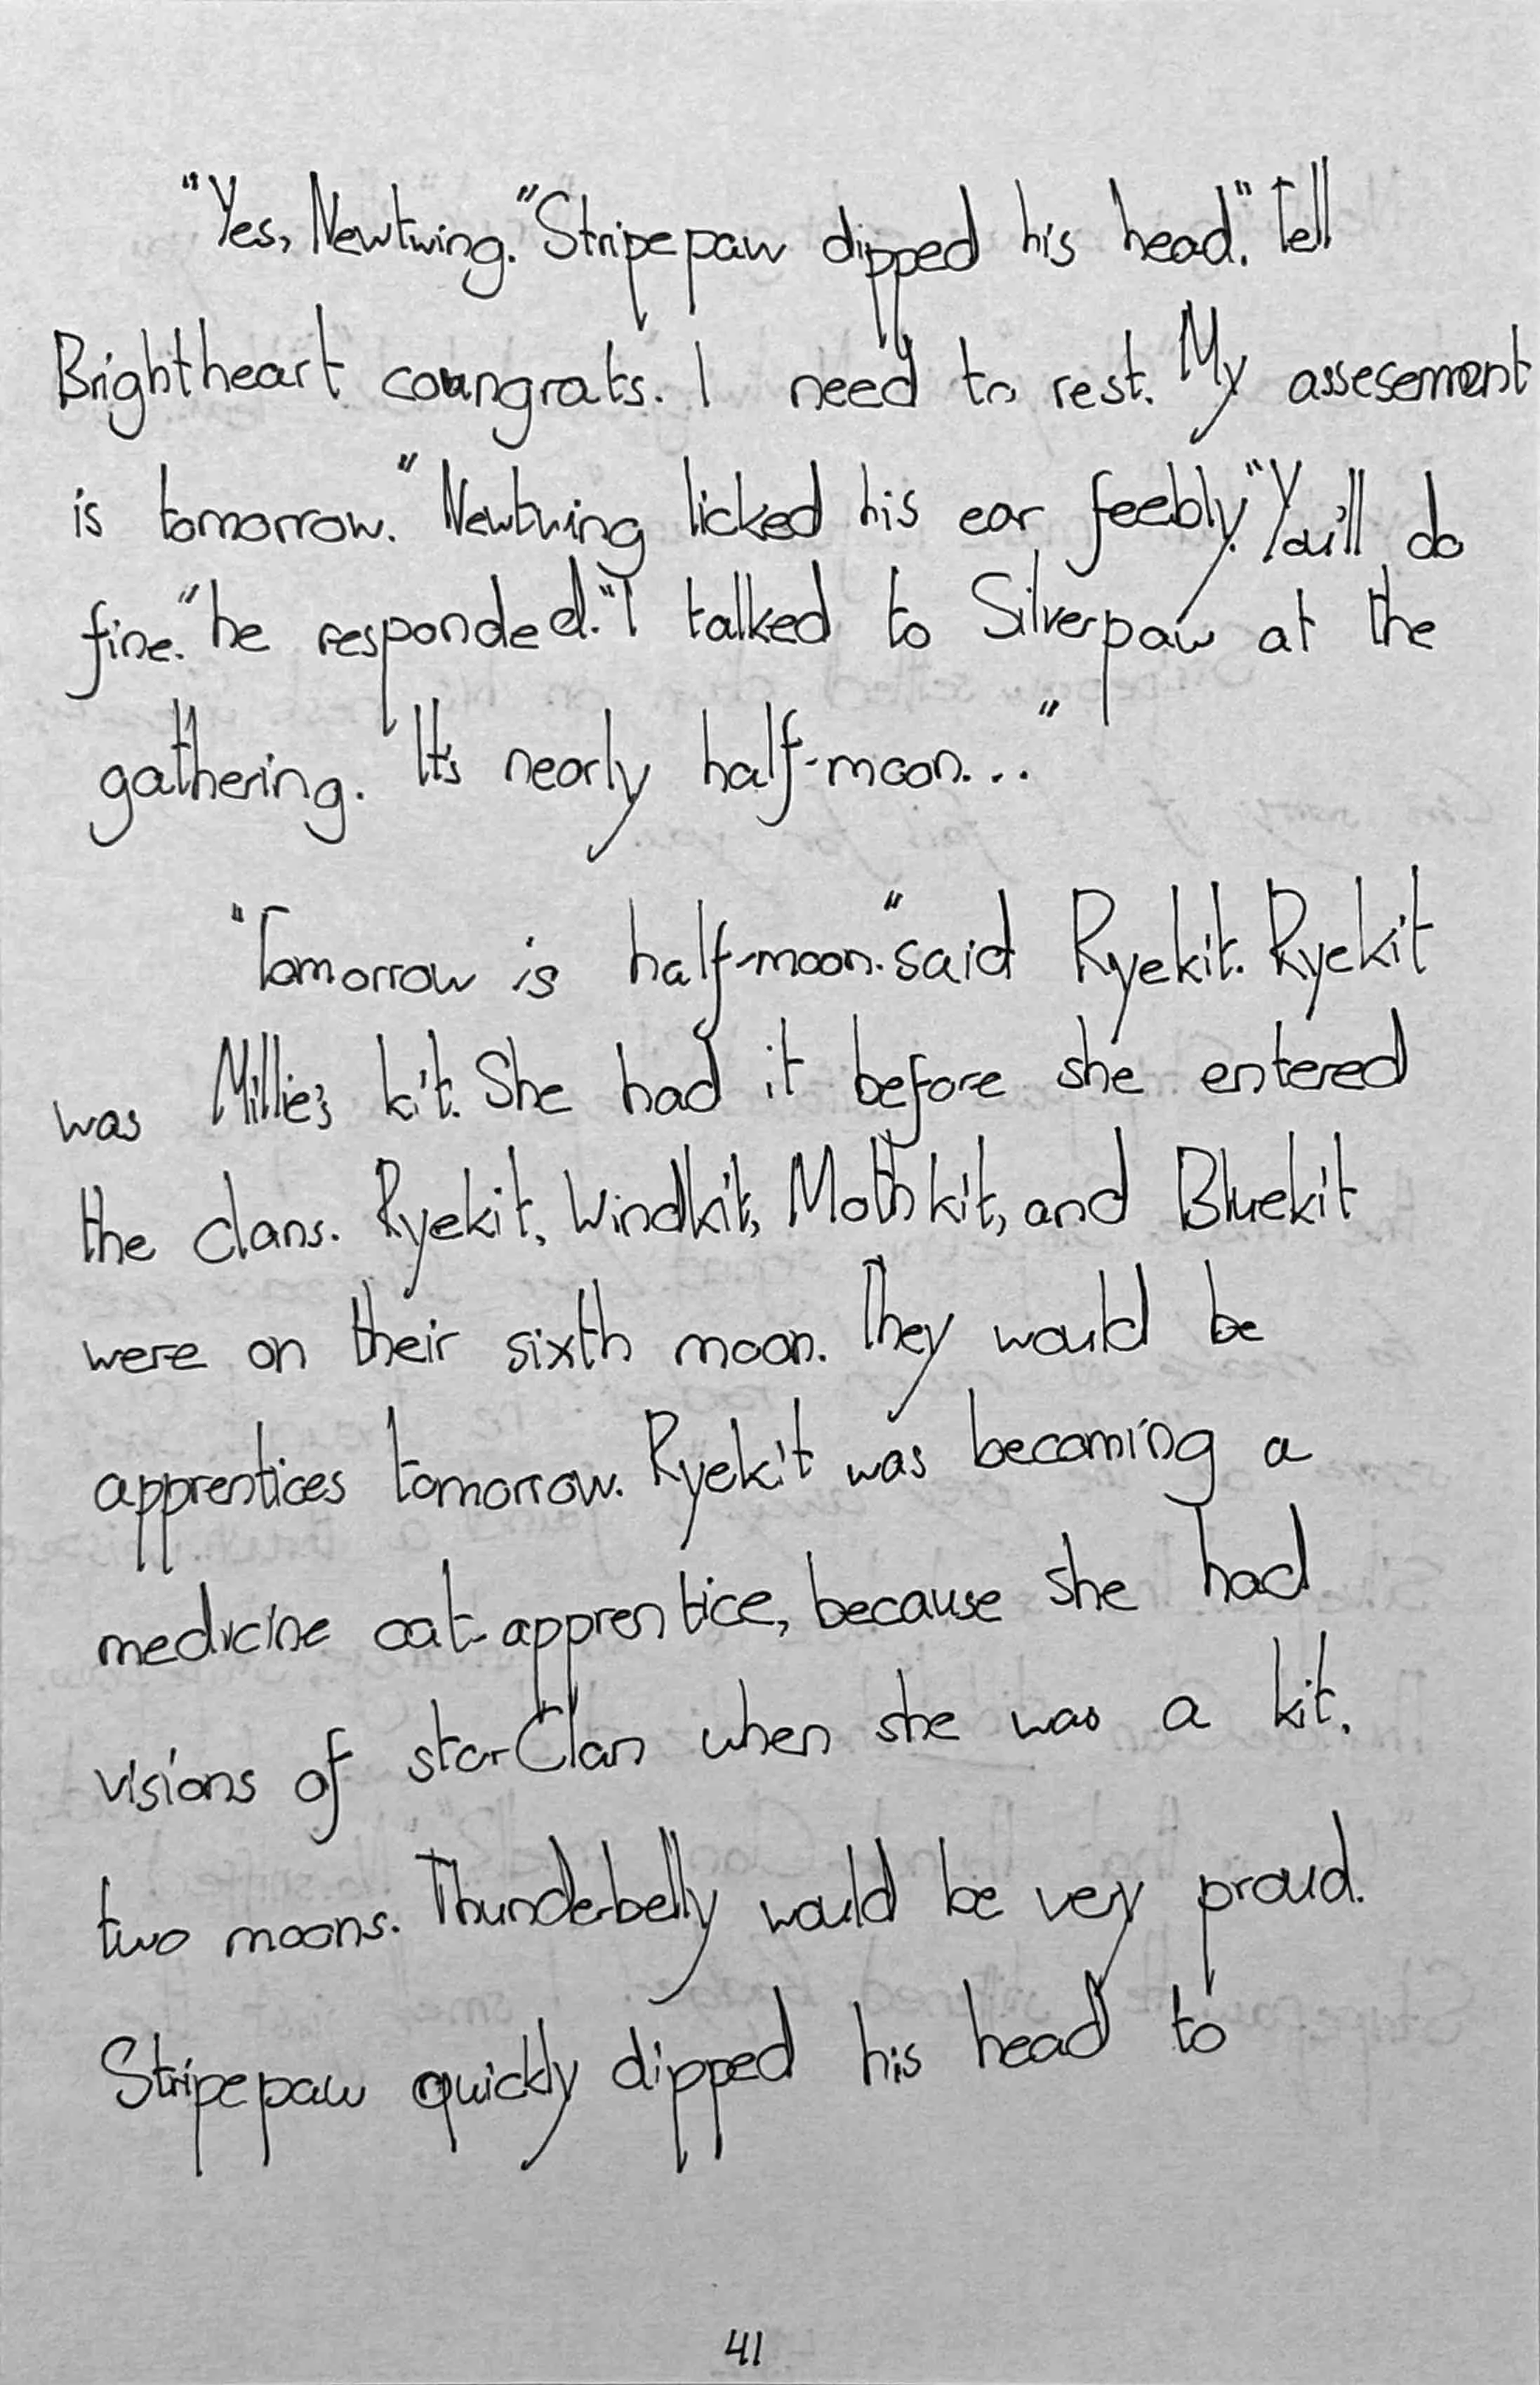 "Yes, Newtwing." Stripepaw dipped his head. "Tell
Brightheart coungrats. I need to rest. My assesement
is tomorrow." Newtwing licked his ear feebly. "You'll do
fine." he responded. "I talked to Silverpaw at the
gathering. It's nearly half-moon..."
"Tomorrow is half-moon." said Ryekit. Ryekit
was Millie's kit. She had it before she entered
the clans. Ryekit, Windkit, Mothkit, and Bluekit
were on their sixth moon. They would be
apprentices tomorrow. Ryekit was becoming a
medicine cat-apprentice, because she had
visions of starClan when she was a kit.
two moons. Thunderbelly would be very proud.
Stripepaw quickly dipped his head to
41